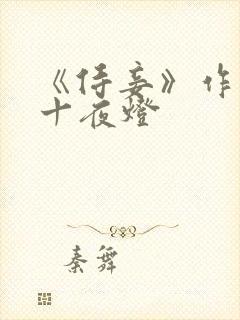 《侍妾》作
十夜燈
秦舞